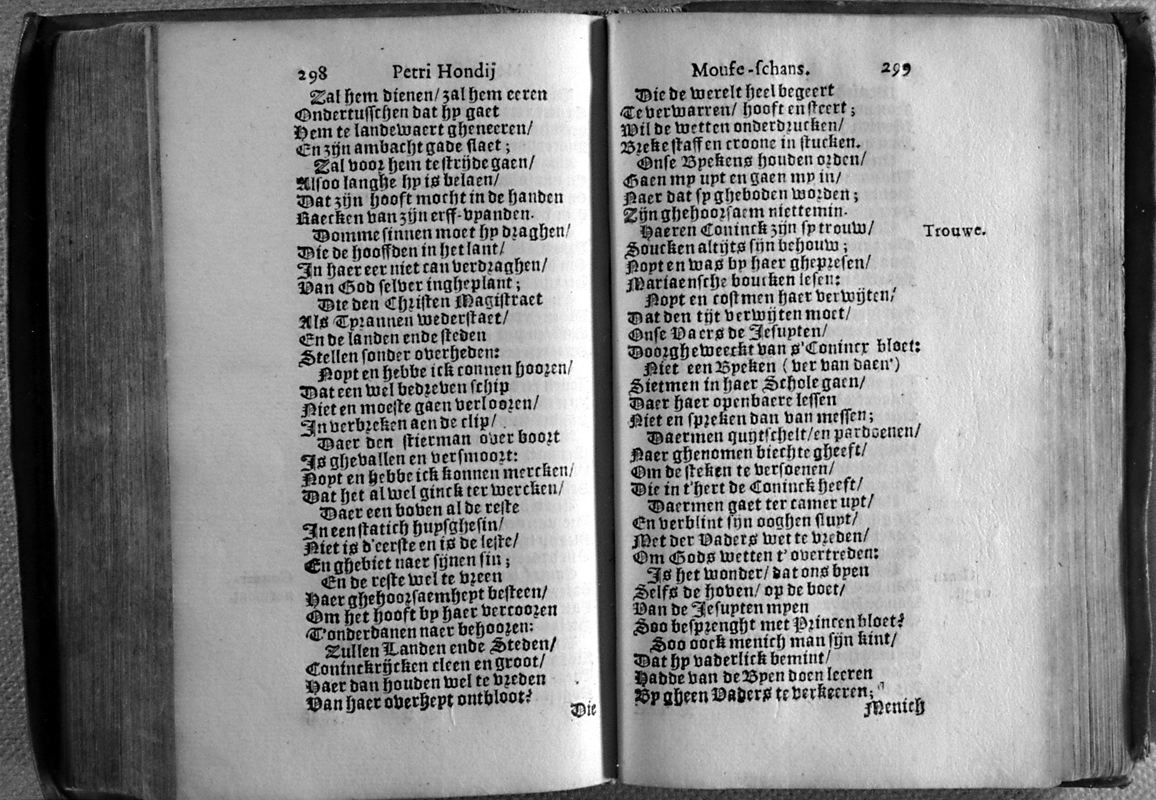 298 Petri Hondij
Zal hem dienen/ zal hem eeren
Ondertusschen dat hy gaet
Hem te landewaert gheneeren/
En zijn ambacht gade slaet;
Zal voor hem te strijde gaen/
Alsoo langhe hy is belaen/
Dat zijn hooft mocht in de handen
Raecken van zijn erff-vyanden.
Domme sinnen moet hy draghen/
Die de hooffden in het lant/
In haer eer niet can verdraghen/
Van God selver ingheplant;
Die den Christen Magistraet
Als Tyrannen wederstaet/
En de landen ende steden
Stellen sonder overheden:
Noyt en hebbe ick connen hooren/
Dat een wel bedreven schip
Niet en moeste gaen verlooren/
In verbreken aen de clip/
Daer den stierman over boort
Is ghevallen en versmoort:
Noyt en hebbe ick konnen mercken/
Dat het al wel ginck ter wercken/
Daer een boven al de reste
In een statich huysghesin/
Niet is d'eerste en is de leste/
En ghebiet naer sijnen sin;
En de reste wel te vreen
Haer ghehoorsaemheyt besteen/
Om het hooft by haer vercooren
T'onderdanen naer behooren:
Zullen Landen ende Steden/
Coninckrijcken cleen en groot/
Haer dan houden wel te vreden
Van haer overheyt ontbloot?
Die
Mouse-schans. 299
Die de werelt heel begeert
Te verwarren/ hooft en steert;
Wil de wetten onderdrucken/
Breke staff en croone in stucken.
Onse Byekens houden orden/
Gaen my uyt en gaen my in/
Naer dat sy gheboden worden;
Zijn ghehoorsaem niettemin.
Haeren Coninck zijn sy trouw/
Trouwe.
Soucken altijts sijn behouw;
Noyt en was by haer ghepresen/
Mariaensche boucken lesen:
Noyt en costmen haer verwijten/
Dat den tijt verwijten moet/
Onse Vaers de Jesuyten/
Doorgheweeckt van s'Conincx bloet:
Niet een Byeken (ver van daen')
Sietmen in haer Schole gaen/
Daer haer openbaere lessen
Niet en spreken dan van messen;
Daermen quijtschelt/ en pardoenen/
Naer ghenomen biechte gheeft/
Om de steken te versoenen/
Die in t'hert de Coninck heeft/
Daermen gaet ter camer uyt/
En verblint sijn ooghen sluyt/
Met der Vaders wet te vreden/
Om Gods wetten t'overtreden:
Is het wonder/ dat ons byen
Selfs de hoven/ op de boet/
Van de Jesuyten myen
Soo besprenght met Princen bloet?
Soo oock menich man sijn kint/
Dat hy vaderlick bemint/
Hadde van de Byen doen leeren
By gheen Vaders te verkeeren;
Menich